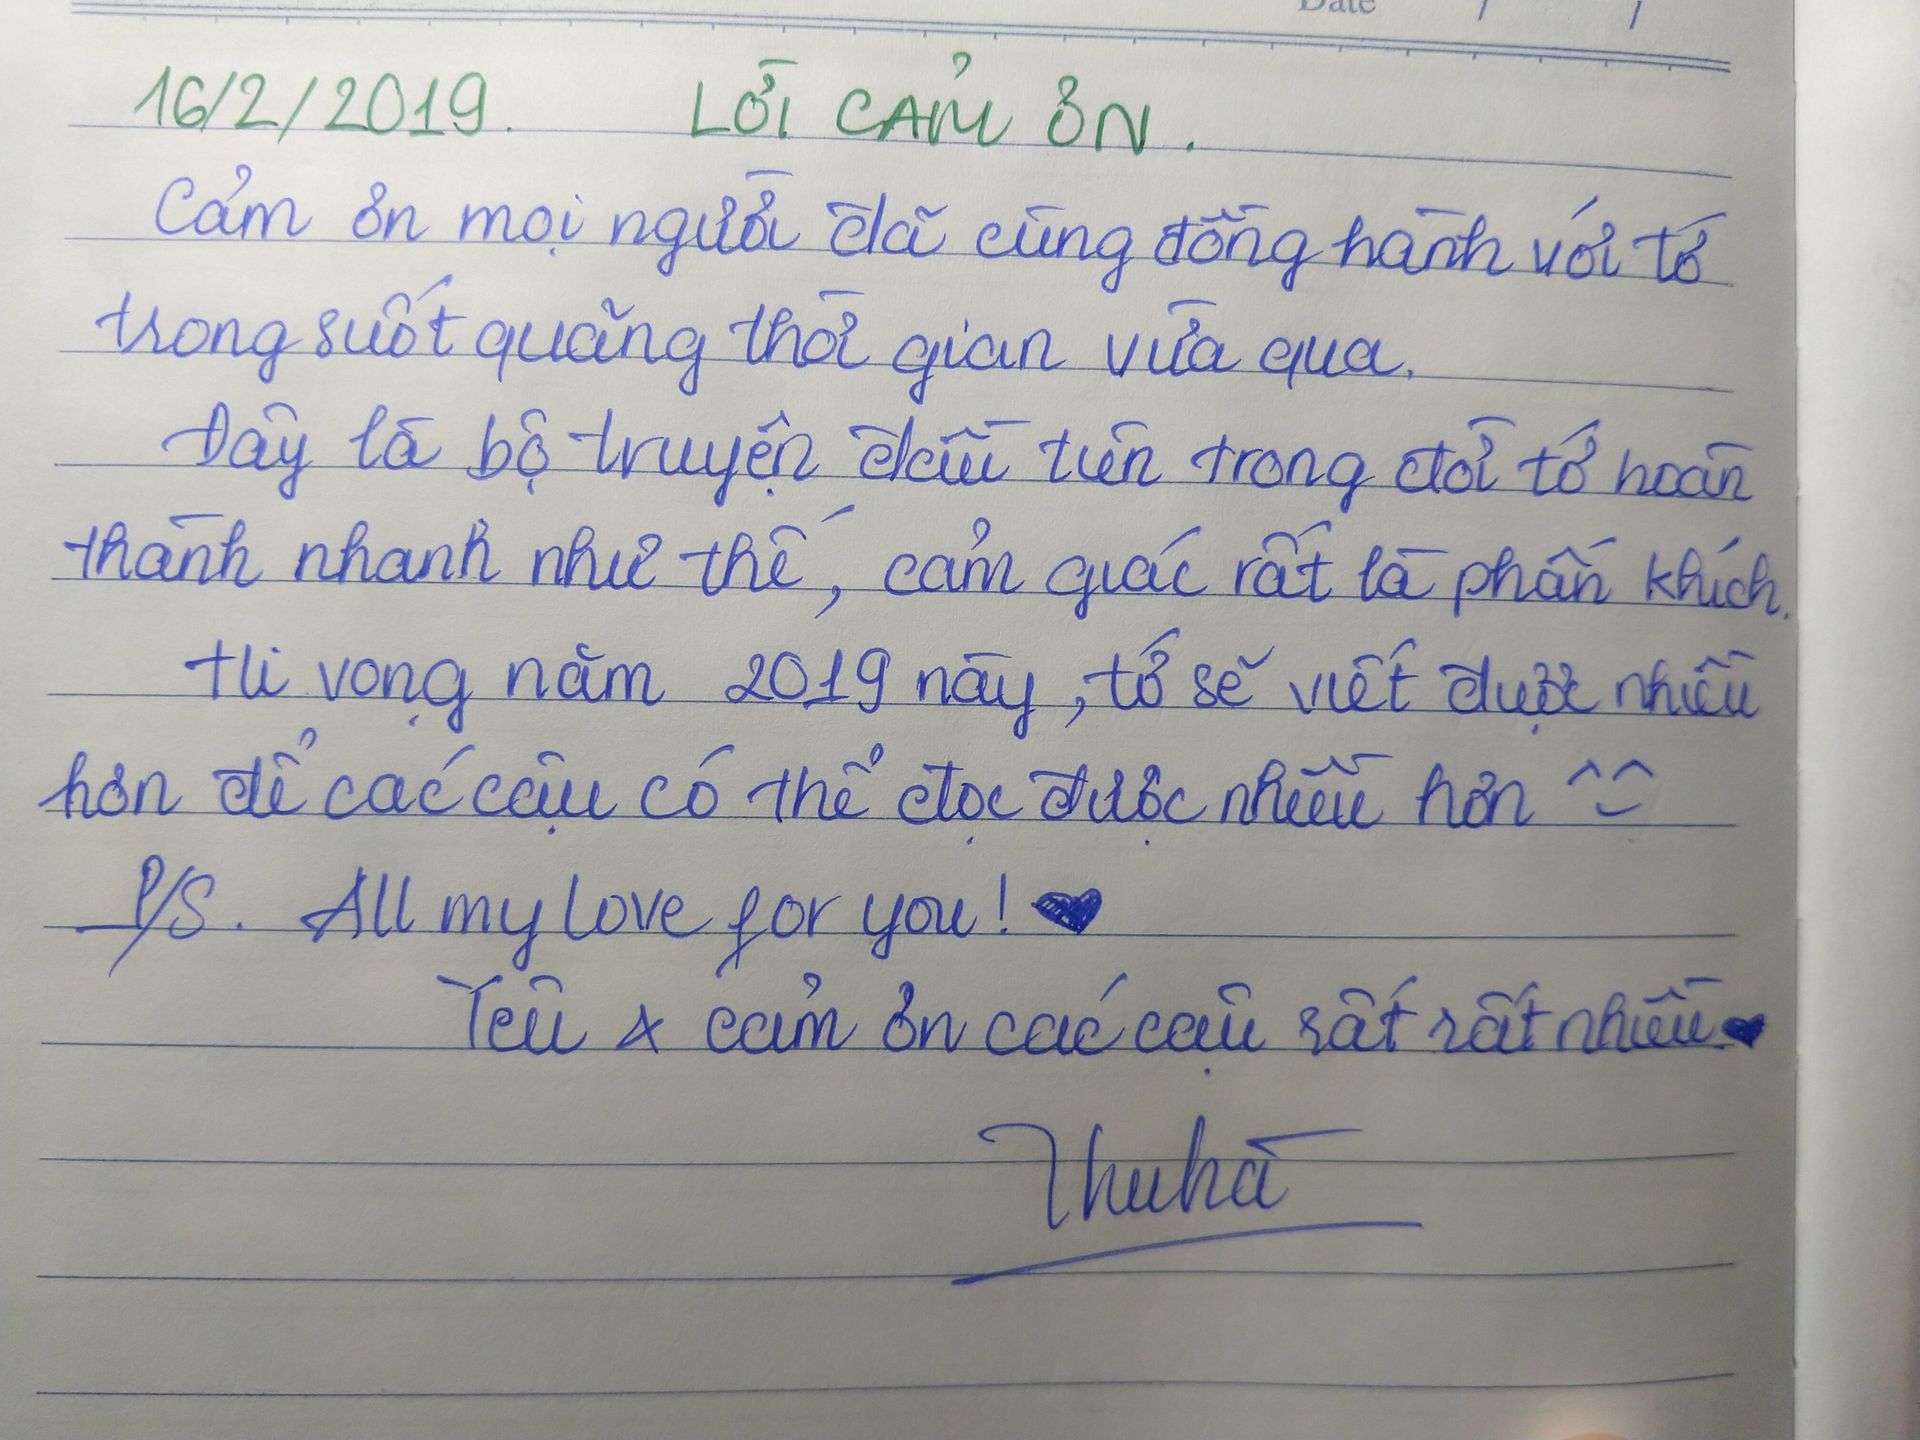 Date / /
16/2/2019. LỜI CẢM ƠN.
Cảm ơn mọi người đã cùng đồng hành với tớ
trong suốt quãng thời gian vừa qua.
Đây là bộ truyện đầu tiên trong đời tớ hoàn
thành nhanh như thế, cảm giác rất là phấn khích.
Hi vọng năm 2019 này, tớ sẽ viết được nhiều
hơn để các cậu có thể đọc được nhiều hơn ^‿^
P/S. All my love for you! ♥
Yêu & cảm ơn các cậu rất rất nhiều ♥
Thu hà